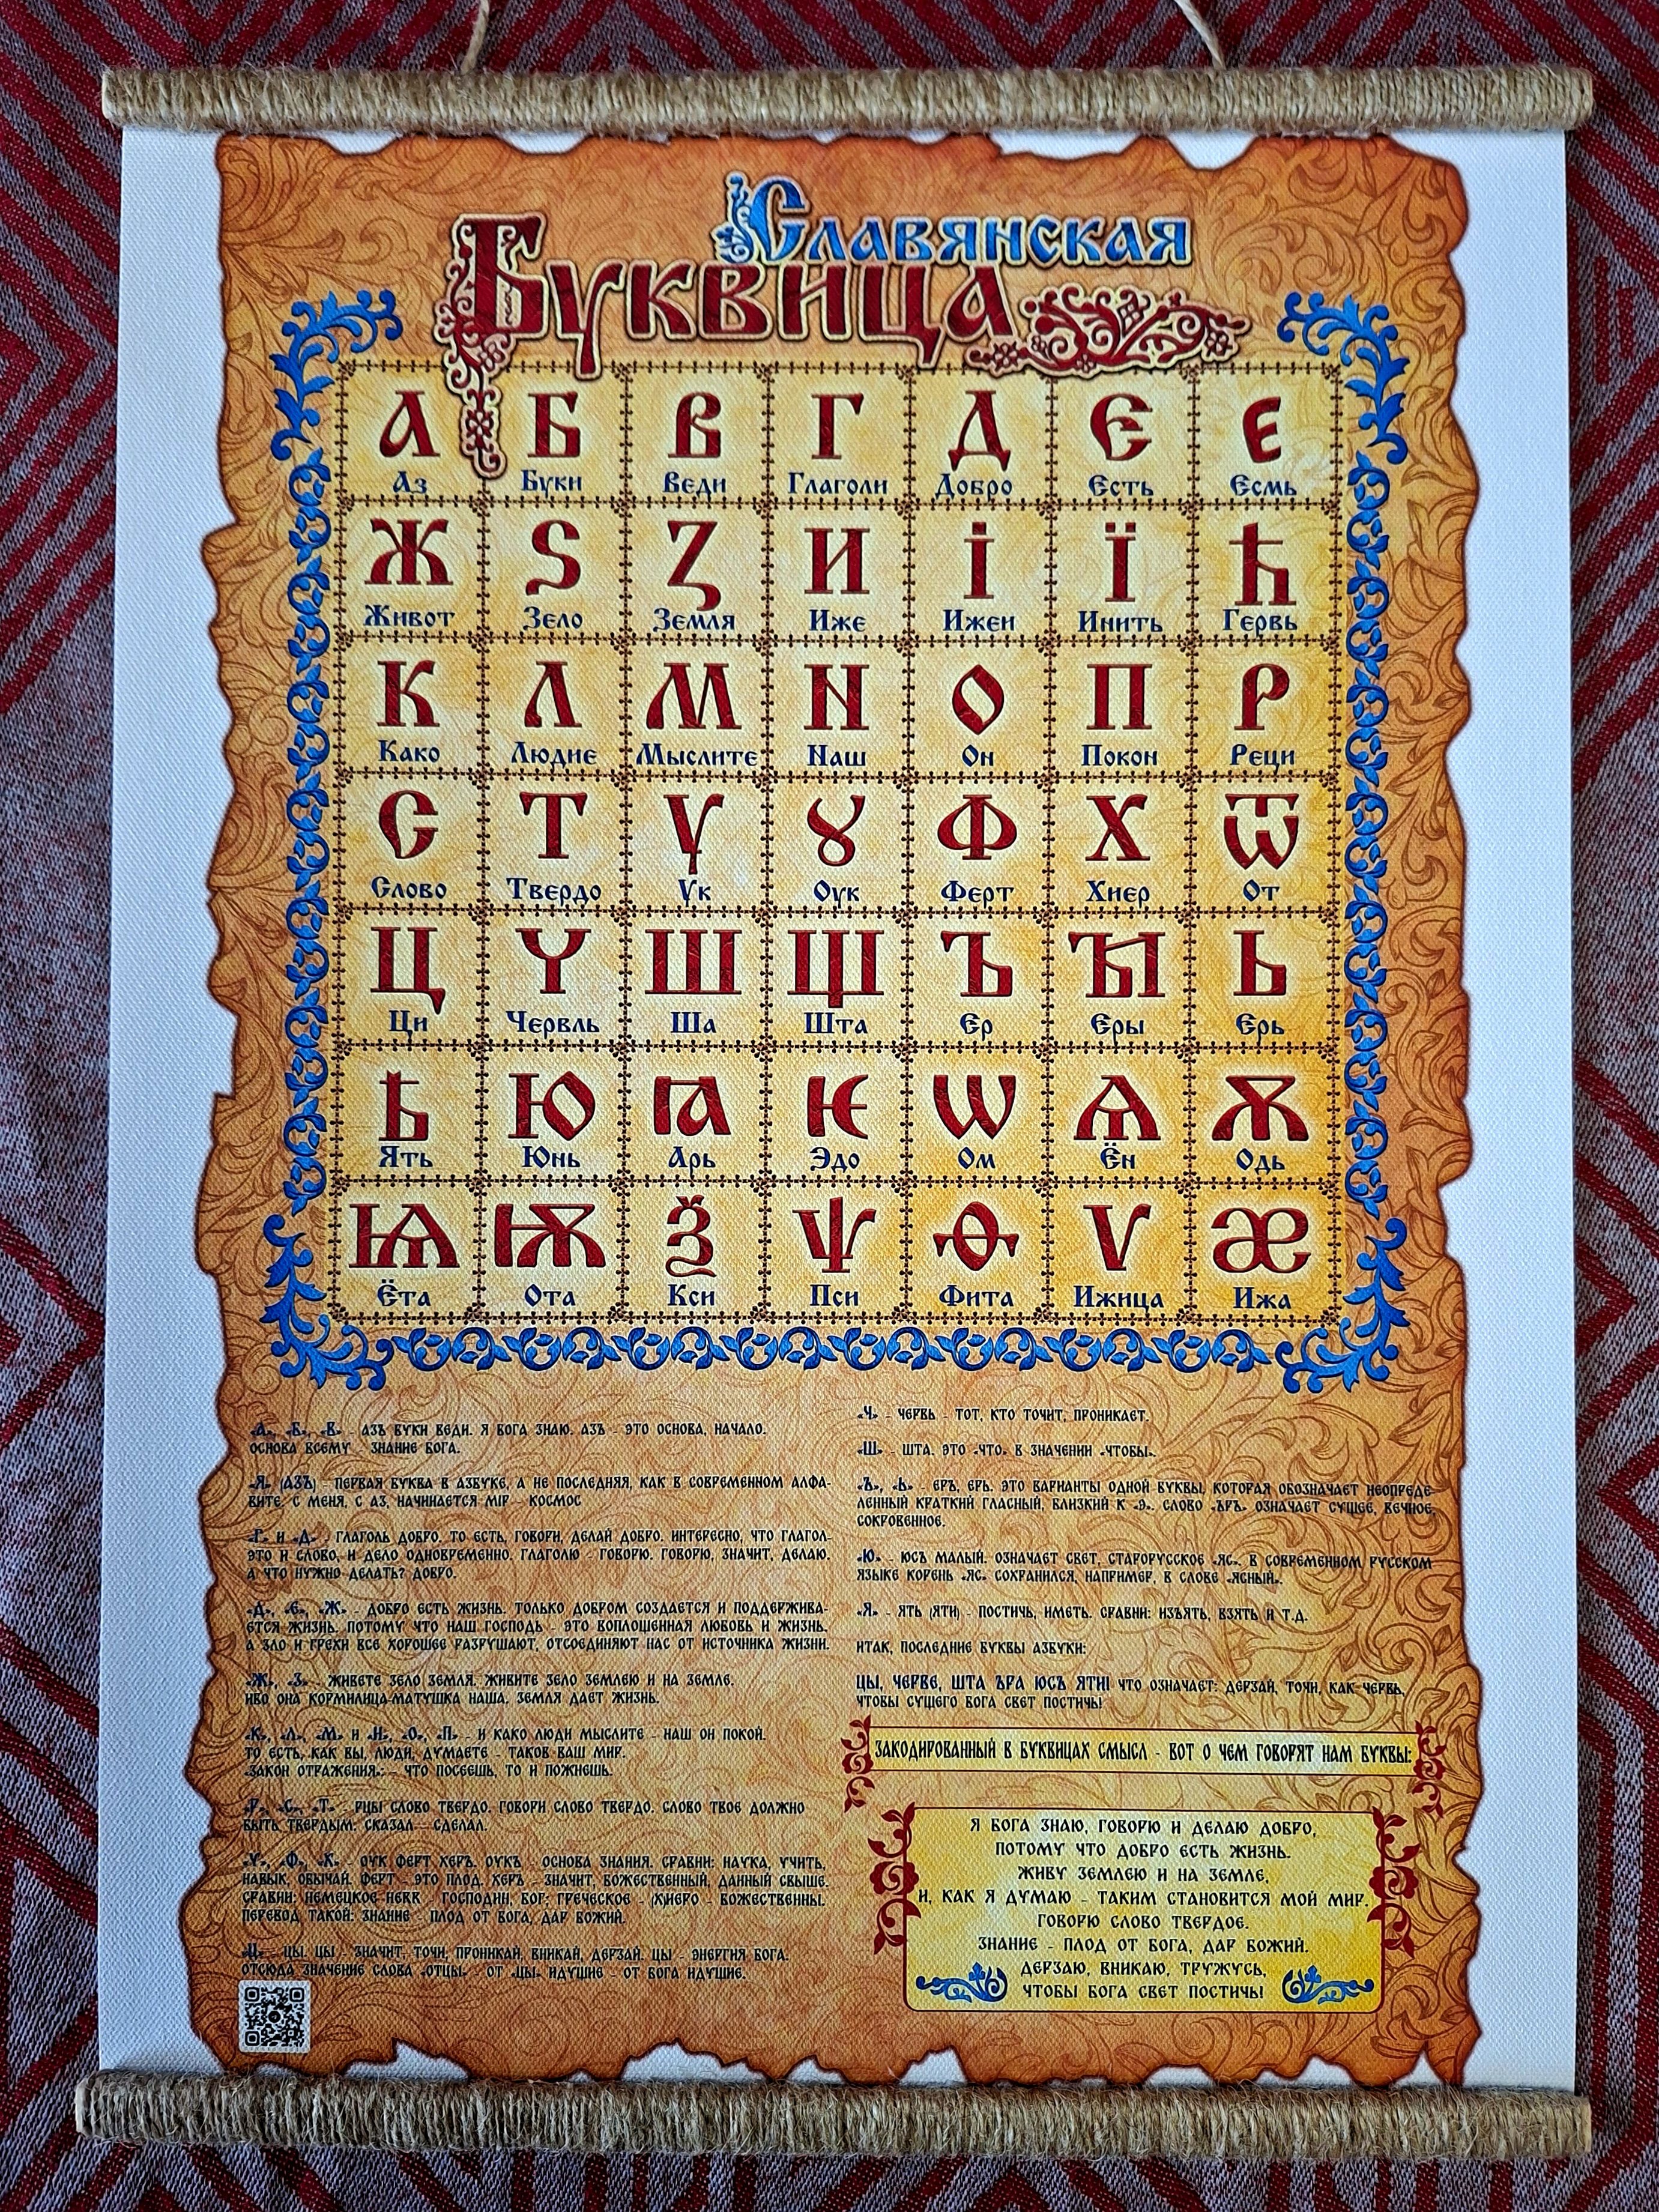 Славянская
Буквица
А Б В Г Д Є Е
Аз Буки Веди Глаголи Добро Єсть Єсмь
Ж Ѕ Ꙁ И І Ї Ћ
Живот Зело Земля Иже Ижеи Инить Гервь
К Л М Н О П Р
Како Людие Мыслите Наш Он Покои Реци
С Т Ѵ Ꙋ Ф Х Ѿ
Слово Твердо Ук Оук Ферт Хиер От
Ц Ч Ш Щ Ъ Ꙑ Ь
Ци Червль Ша Шта Єр Єры Єрь
Ѣ Ю Ꙗ Ѥ Ѡ Ѧ Ѫ
Ять Юнь Арь Эдо Ом Ён Одь
Ѩ Ѭ Ѯ Ѱ Ѳ Ѵ Æ
Ёта Ота Кси Пси Фита Ижица Ижа
«А», «Б», «В» - АЗЪ БУКИ ВЕДИ. Я БОГА ЗНАЮ. АЗЪ - ЭТО ОСНОВА, НАЧАЛО.
ОСНОВА ВСЕМУ - ЗНАНИЕ БОГА.
«Я» (АЗЪ) - ПЕРВАЯ БУКВА В АЗБУКЕ, А НЕ ПОСЛЕДНЯЯ, КАК В СОВРЕМЕННОМ АЛФА-
ВИТЕ. С МЕНЯ, С АЗ, НАЧИНАЕТСЯ МІР - КОСМОС
«Г» И «Д» - ГЛАГОЛЬ ДОБРО. ТО ЕСТЬ, ГОВОРИ, ДЕЛАЙ ДОБРО. ИНТЕРЕСНО, ЧТО ГЛАГОЛ-
ЭТО И СЛОВО, И ДЕЛО ОДНОВРЕМЕННО. ГЛАГОЛЮ - ГОВОРЮ. ГОВОРЮ, ЗНАЧИТ, ДЕЛАЮ.
А ЧТО НУЖНО ДЕЛАТЬ? ДОБРО.
«Д», «Е», «Ж» - ДОБРО ЕСТЬ ЖИЗНЬ. ТОЛЬКО ДОБРОМ СОЗДАЕТСЯ И ПОДДЕРЖИВА-
ЕТСЯ ЖИЗНЬ. ПОТОМУ ЧТО НАШ ГОСПОДЬ - ЭТО ВОПЛОЩЕННАЯ ЛЮБОВЬ И ЖИЗНЬ.
А ЗЛО И ГРЕХИ ВСЕ ХОРОШЕЕ РАЗРУШАЮТ, ОТСОЕДИНЯЮТ НАС ОТ ИСТОЧНИКА ЖИЗНИ.
«Ж», «З» - ЖИВЕТЕ ЗЕЛО ЗЕМЛЯ. ЖИВИТЕ ЗЕЛО ЗЕМЛЕЮ И НА ЗЕМЛЕ.
ИБО ОНА КОРМИЛИЦА-МАТУШКА НАША. ЗЕМЛЯ ДАЕТ ЖИЗНЬ.
«К», «Л», «М» И «Н», «О», «П» - И КАКО ЛЮДИ МЫСЛИТЕ - НАШ ОН ПОКОЙ.
ТО ЕСТЬ, КАК ВЫ, ЛЮДИ, ДУМАЕТЕ - ТАКОВ ВАШ МИР.
«ЗАКОН ОТРАЖЕНИЯ»: - ЧТО ПОСЕЕШЬ, ТО И ПОЖНЕШЬ.
«Р», «С», «Т» - РЦЫ СЛОВО ТВЕРДО. ГОВОРИ СЛОВО ТВЕРДО. СЛОВО ТВОЕ ДОЛЖНО
БЫТЬ ТВЕРДЫМ: СКАЗАЛ - СДЕЛАЛ.
«У», «Ф», «Х» - ОУК ФЕРТ ХЕРЪ. ОУКЪ - ОСНОВА ЗНАНИЯ. СРАВНИ: НАУКА, УЧИТЬ,
НАВЫК, ОБЫЧАЙ. ФЕРТ - ЭТО ПЛОД. ХЕРЪ - ЗНАЧИТ, БОЖЕСТВЕННЫЙ, ДАННЫЙ СВЫШЕ.
СРАВНИ: НЕМЕЦКОЕ HERR - ГОСПОДИН, БОГ; ГРЕЧЕСКОЕ - (Х)ИЕРО - БОЖЕСТВЕННЫ.
ПЕРЕВОД ТАКОЙ: ЗНАНИЕ - ПЛОД ОТ БОГА, ДАР БОЖИЙ.
«Ц» - ЦЫ. ЦЫ - ЗНАЧИТ, ТОЧИ, ПРОНИКАЙ, ВНИКАЙ, ДЕРЗАЙ. ЦЫ - ЭНЕРГИЯ БОГА.
ОТСЮДА ЗНАЧЕНИЕ СЛОВА «ОТЦЫ» - ОТ «ЦЫ» ИДУЩИЕ - ОТ БОГА ИДУЩИЕ.
«Ч» - ЧЕРВЬ - ТОТ, КТО ТОЧИТ, ПРОНИКАЕТ.
«Ш» - ШТА. ЭТО «ЧТО» В ЗНАЧЕНИИ «ЧТОБЫ».
«Ъ», «Ь» - ЕРЪ, ЕРЬ. ЭТО ВАРИАНТЫ ОДНОЙ БУКВЫ, КОТОРАЯ ОБОЗНАЧАЕТ НЕОПРЕДЕ-
ЛЕННЫЙ КРАТКИЙ ГЛАСНЫЙ, БЛИЗКИЙ К «Э». СЛОВО «ЪРЪ» ОЗНАЧАЕТ СУЩЕЕ, ВЕЧНОЕ,
СОКРОВЕННОЕ.
«Ю» - ЮСЪ МАЛЫЙ. ОЗНАЧАЕТ СВЕТ, СТАРОРУССКОЕ «ЯС». В СОВРЕМЕННОМ РУССКОМ
ЯЗЫКЕ КОРЕНЬ «ЯС» СОХРАНИЛСЯ, НАПРИМЕР, В СЛОВЕ «ЯСНЫЙ».
«Я» - ЯТЬ (ЯТИ) - ПОСТИЧЬ, ИМЕТЬ. СРАВНИ: ИЗЪЯТЬ, ВЗЯТЬ И Т.Д.
ИТАК, ПОСЛЕДНИЕ БУКВЫ АЗБУКИ:
ЦЫ, ЧЕРВЕ, ШТА ЪРА ЮСЪ ЯТИ! ЧТО ОЗНАЧАЕТ: ДЕРЗАЙ, ТОЧИ, КАК ЧЕРВЬ,
ЧТОБЫ СУЩЕГО БОГА СВЕТ ПОСТИЧЬ!
ЗАКОДИРОВАННЫЙ В БУКВИЦАХ СМЫСЛ - ВОТ О ЧЕМ ГОВОРЯТ НАМ БУКВЫ:
Я БОГА ЗНАЮ, ГОВОРЮ И ДЕЛАЮ ДОБРО,
ПОТОМУ ЧТО ДОБРО ЕСТЬ ЖИЗНЬ.
ЖИВУ ЗЕМЛЕЮ И НА ЗЕМЛЕ,
И, КАК Я ДУМАЮ - ТАКИМ СТАНОВИТСЯ МОЙ МИР.
ГОВОРЮ СЛОВО ТВЕРДОЕ.
ЗНАНИЕ - ПЛОД ОТ БОГА, ДАР БОЖИЙ.
ДЕРЗАЮ, ВНИКАЮ, ТРУЖУСЬ,
ЧТОБЫ БОГА СВЕТ ПОСТИЧЬ!